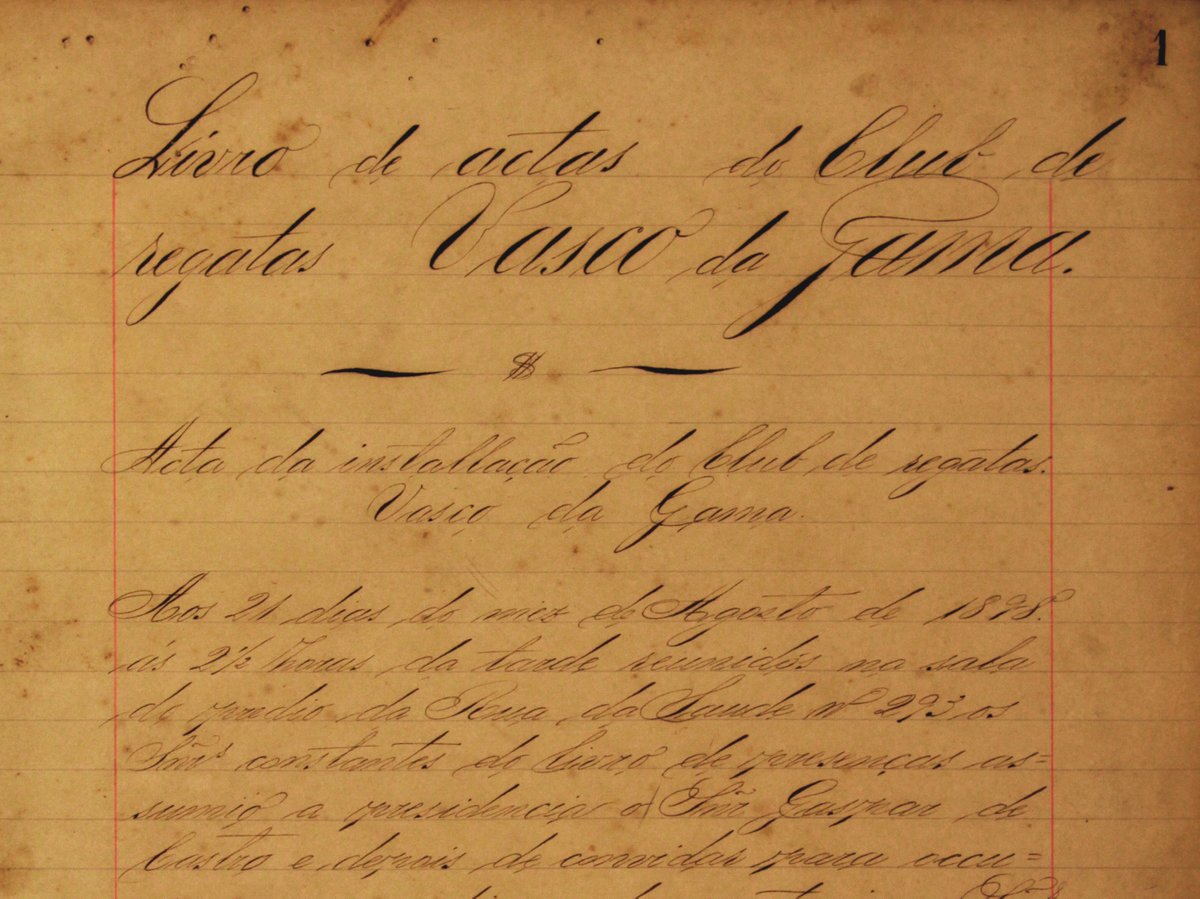 1
Livro de actas do Club de
regatas Vasco da Gama.
Acta da installação do Club de regatas.
Vasco da Gama.
Aos 21 dias do mez de Agosto de 1898.
ás 2½ horas da tarde reunidos na sala
do predio da Rua da Saude nº 293 os
Snrs constantes do livro de presenças as=
sumio a presidencia o Snr Gaspar de
Castro e depois de convidar para occu=